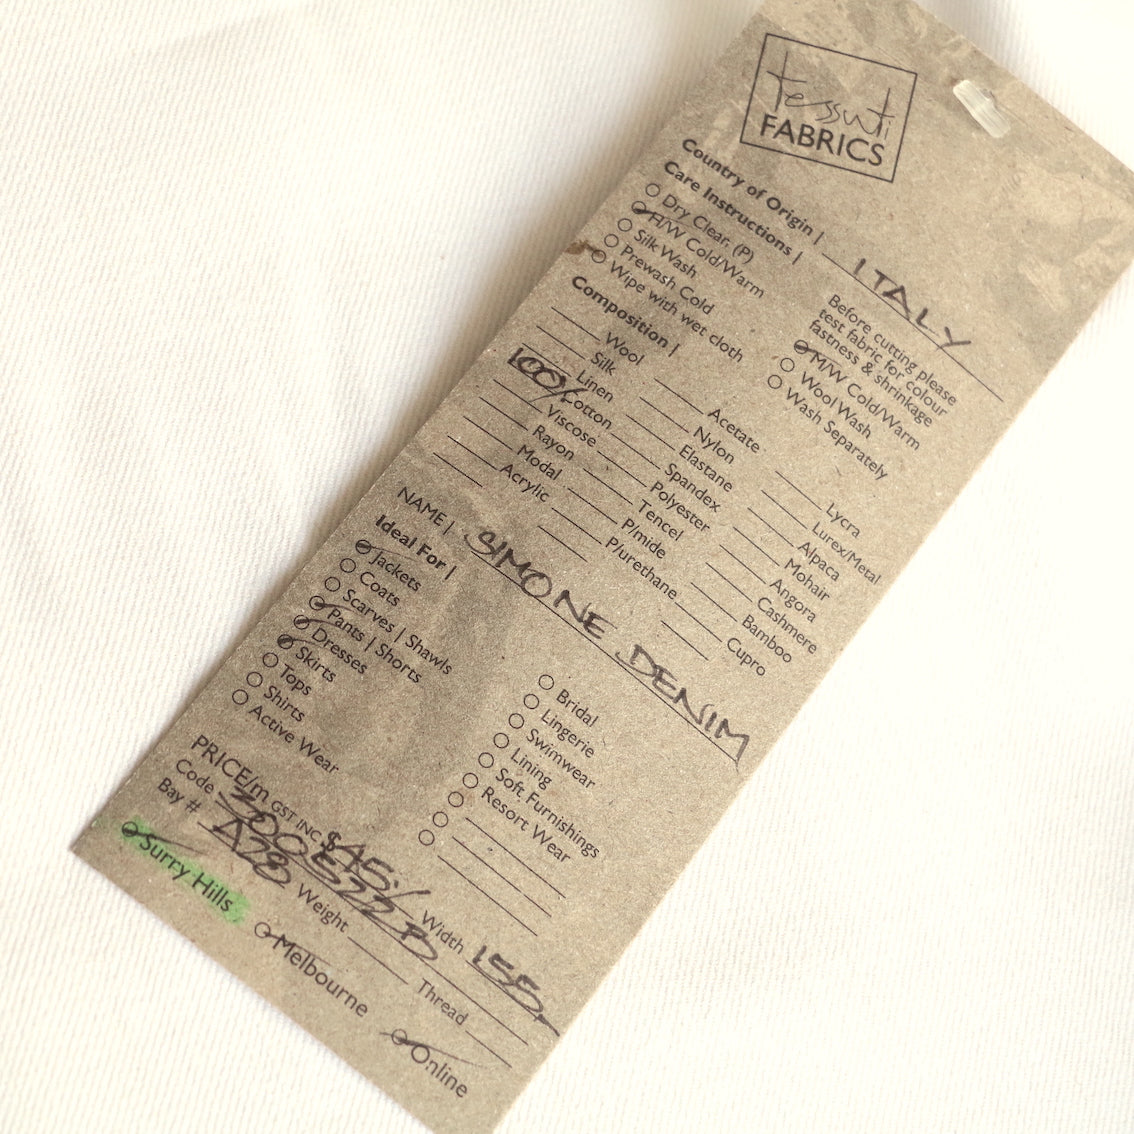 tessuti
FABRICS
Country of Origin | ITALY
Care Instructions |
Dry Clear, (P)
H/W Cold/Warm
Silk Wash
Prewash Cold
Wipe with wet cloth
Before cutting please
test fabric for colour
fastness & shrinkage
M/W Cold/Warm
Wool Wash
Wash Separately
Composition |
Wool
Silk
Linen
100% Cotton
Viscose
Rayon
Modal
Acrylic
Acetate
Nylon
Elastane
Spandex
Polyester
Tencel
P/mide
P/urethane
Lycra
Lurex/Metal
Alpaca
Mohair
Angora
Cashmere
Bamboo
Cupro
NAME | SIMONE DENIM
Ideal For |
Jackets
Coats
Scarves | Shawls
Pants | Shorts
Dresses
Skirts
Tops
Shirts
Active Wear
Bridal
Lingerie
Swimwear
Lining
Soft Furnishings
Resort Wear
PRICE/m GST INC. $45/ Width 155
Code 300522 B
Bay # A28 Weight Thread
Surry Hills Melbourne Online